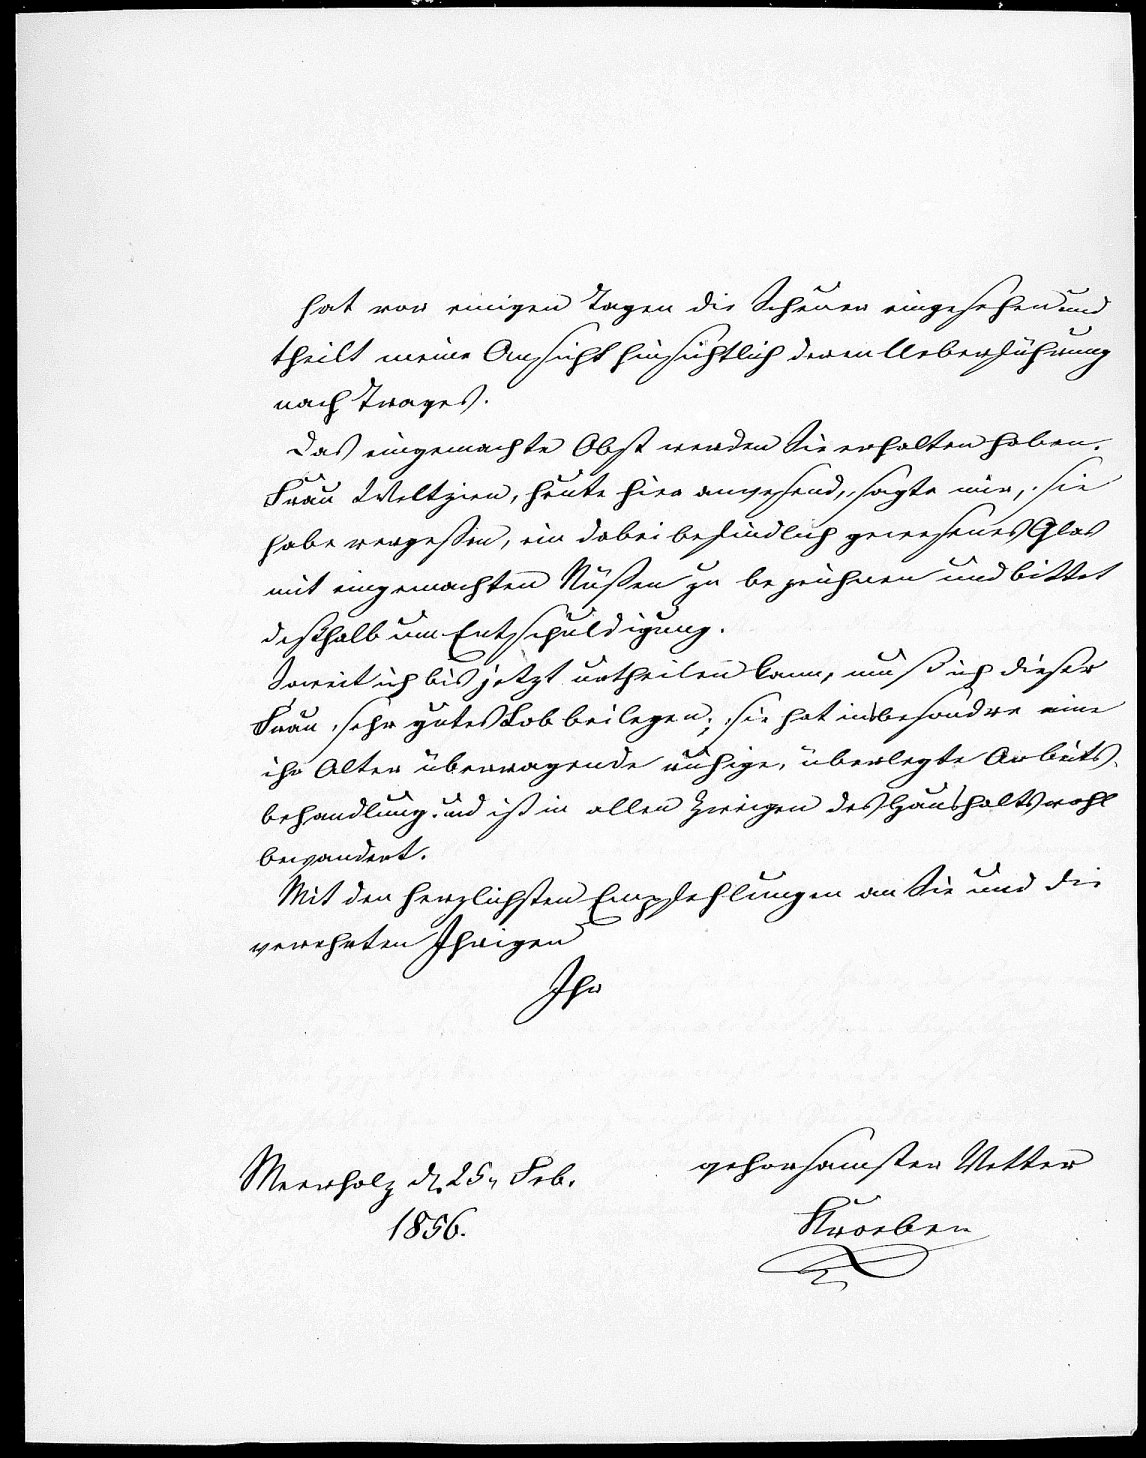 hat vor einigen Tagen die Scheuer eingesehen und
theilt meine Ansicht hinsichtlich deren Ueberführung
nach Trages.
Das eingemachte Obst werden Sie erhalten haben.
Frau Weltzien, heute hier anwesend, sagte mir, sie
habe vergessen, ein dabei befindlich gewesenes Glas
mit eingemachten Nüßen zu bezeichnen und bittet
deßhalb um Entschuldigung.
Soweit ich bis jetzt urtheilen kann, muß ich dieser
Frau sehr gutes Lob beilegen; sie hat insbesondre eine
ihr Alter überragende ruhige, überlegte Arbeits-
behandlung und ist in allen Zweigen des Haushalts wohl
bewandert.
Mit den herzlichsten Empfehlungen an Sie und die
verehrten Ihrigen
Ihr
gehorsamster Vetter
Meerholz d. 25. Feb.
1856.